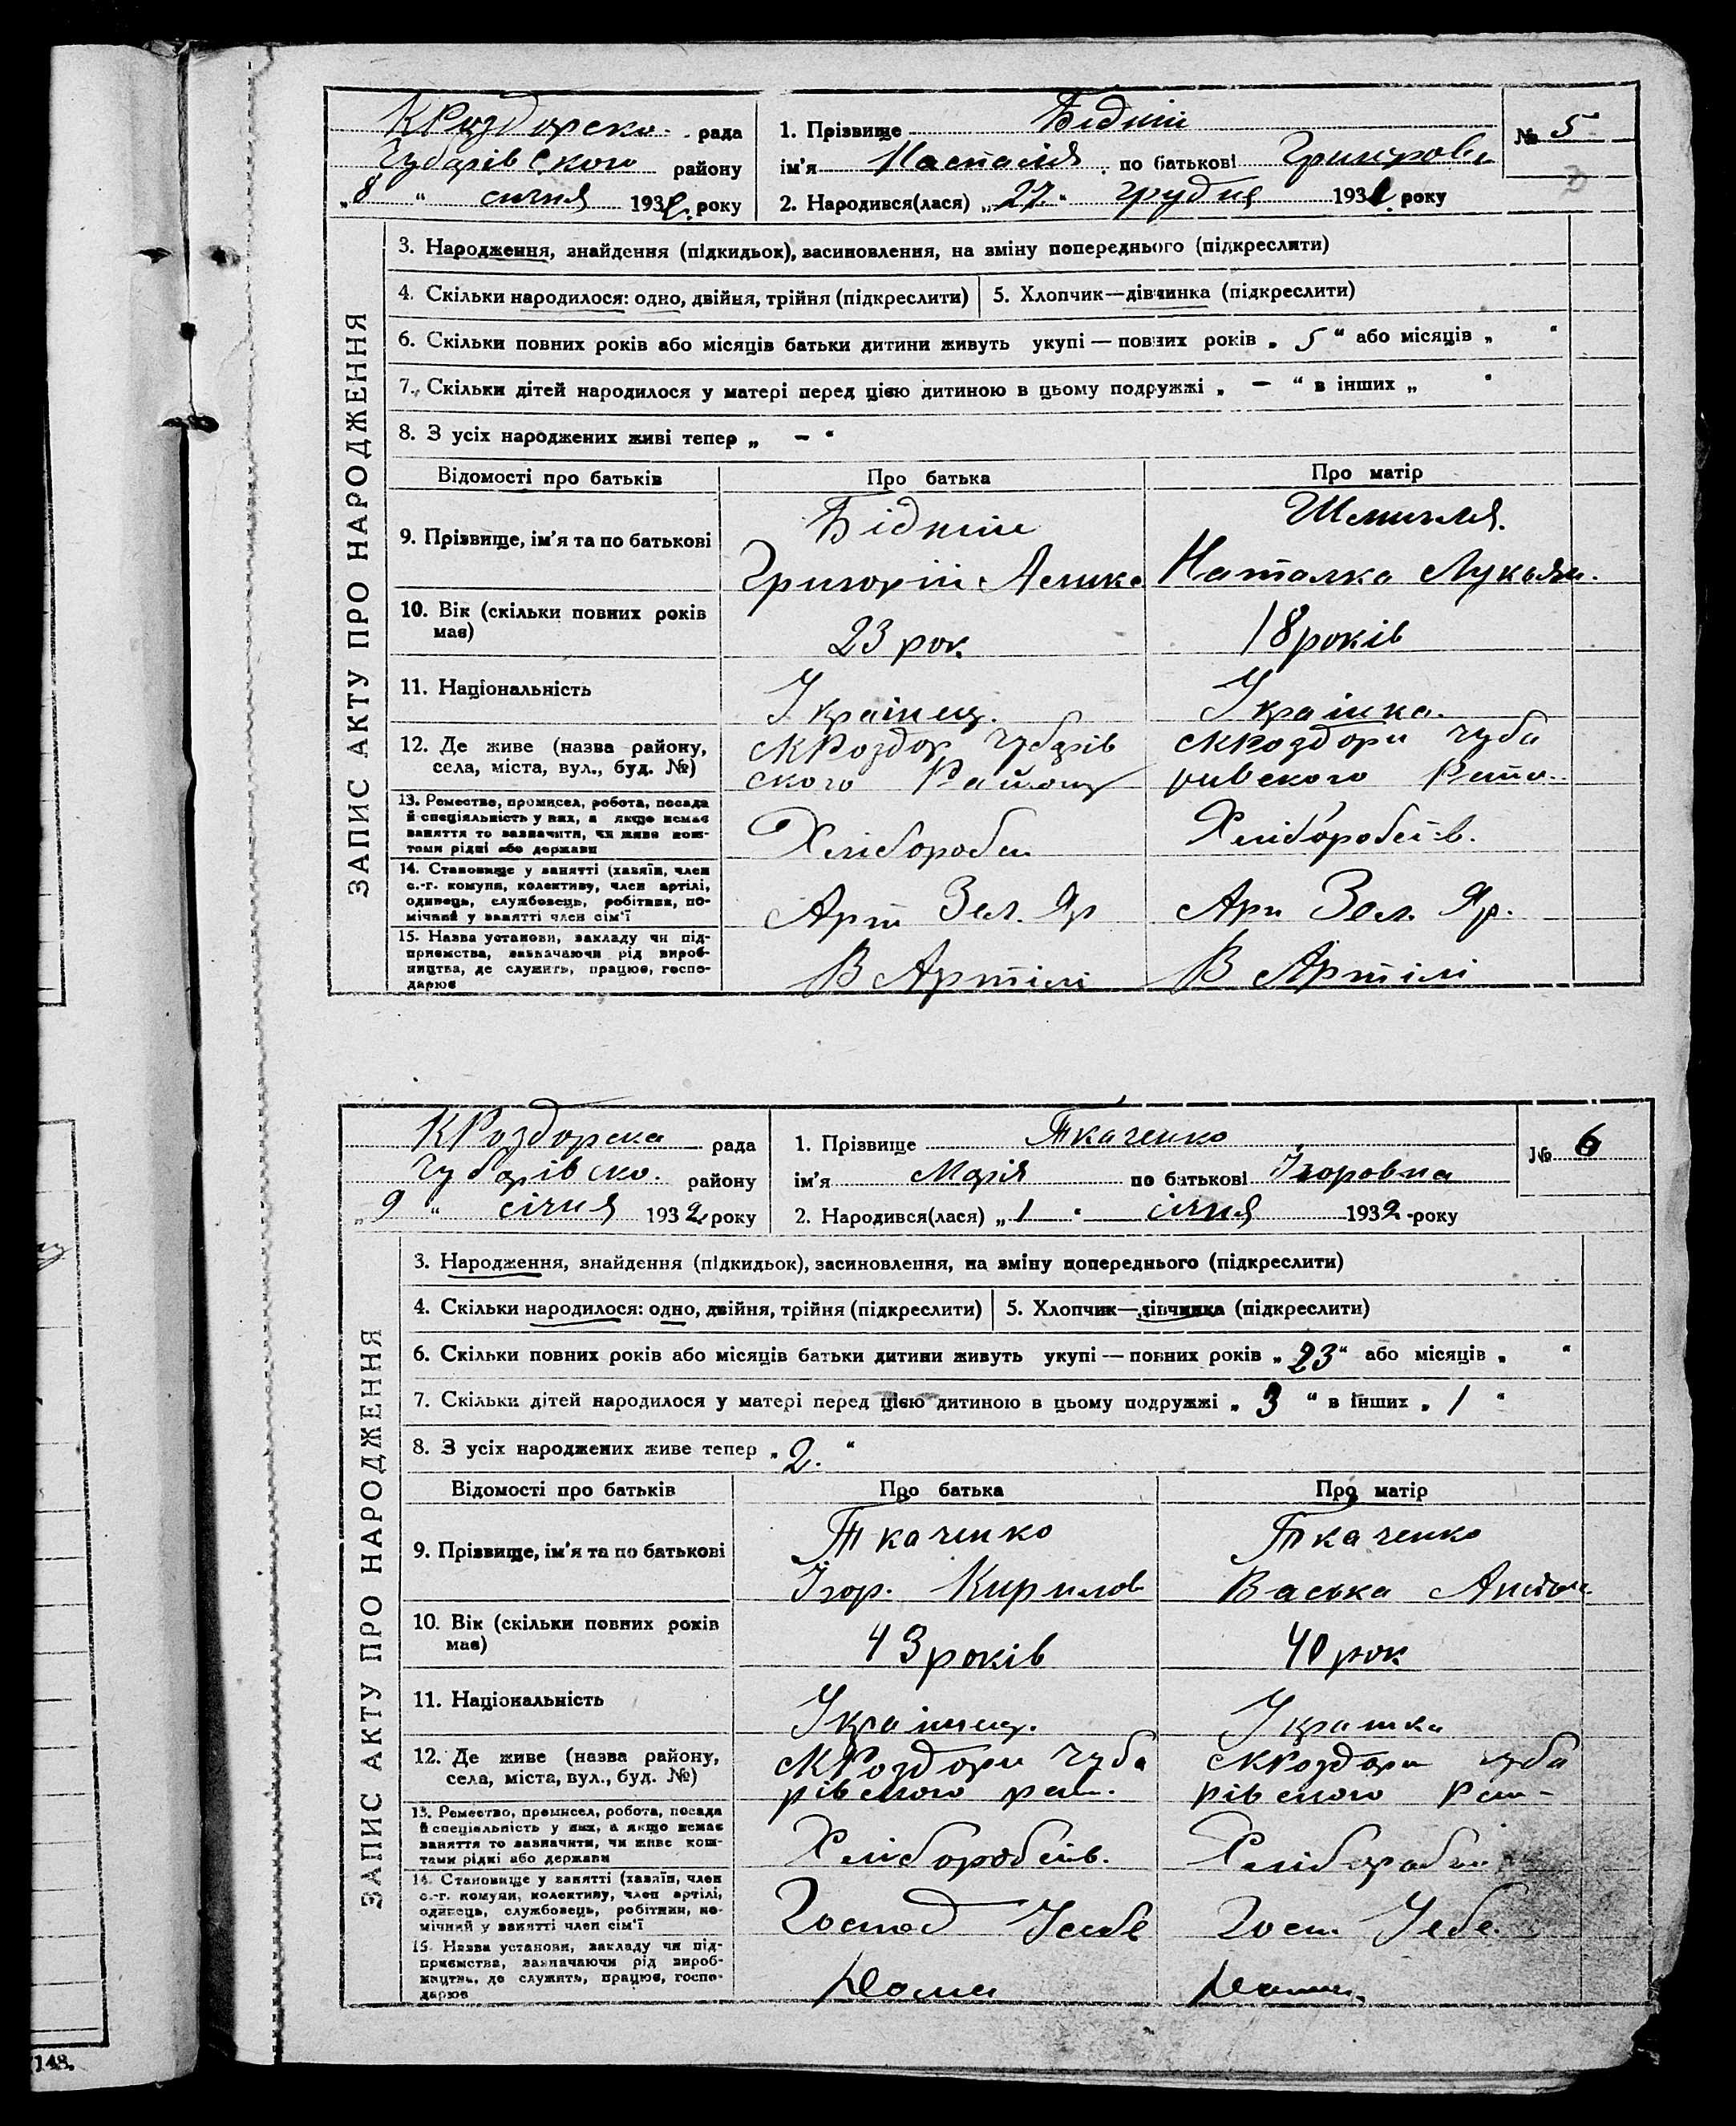 КРоздорска рада
Чубарівского району
„8“ січня 1932 року
1. Прізвище Бідний
ім'я по батькові
2. Народився(лася) „27“ грудня 1931 року
№ 5
ЗАПИС АКТУ ПРО НАРОДЖЕННЯ
3. Народження, знайдення (підкидьок), засиновлення, на зміну попереднього (підкреслити)
4. Скільки народилося: одно, двійня, трійня (підкреслити)
5. Хлопчик—дівчинка (підкреслити)
6. Скільки повних років або місяців батьки дитини живуть укупі — повних років „ 5 “ або місяців „ “
7. Скільки дітей народилося у матері перед цією дитиною в цьому подружжі „ — “ в інших „ “
8. З усіх народжених живі тепер „ — “
Відомості про батьків
Про батька
Про матір
9. Прізвище, ім'я та по батькові
Бідний
Григорій
Наталка Лукьян.
10. Вік (скільки повних років
має)
23 рок.
18 років
11. Національність
Українец.
Українка.
12. Де живе (назва району,
села, міста, вул., буд. №)
сКРоздор Чубарів
ского Району
сКРоздори Чуба
ривского Райо.
13. Ремество, промисел, робота, посада
й спеціяльність у них, а якщо немає
заняття то зазначити, чи живе кош-
тами рідні або держави
Хлібороб
Хліборобств.
14. Становище у занятті (хазяїн, член
с.-г. комуни, колективу, член артілі,
одинець, службовець, робітник, по-
мічний у занятті член сім'ї
Арт Зел. Яр
Арт Зел. Яр.
15. Назва установи, закладу чи під-
приємства, зазначаючи рід вироб-
ництва, де служить, працює, госпо-
дарює
В Артілі
В Артілі
КРоздорска рада
Чубарівско. району
„9“ січня 1932 року
1. Прізвище Ткаченко
ім'я Марія по батькові Ігоровна
2. Народився(лася) „1“ січня 1932 року
№ 6
ЗАПИС АКТУ ПРО НАРОДЖЕННЯ
3. Народження, знайдення (підкидьок), засиновлення, на зміну попереднього (підкреслити)
4. Скільки народилося: одно, двійня, трійня (підкреслити)
5. Хлопчик—дівчинка (підкреслити)
6. Скільки повних років або місяців батьки дитини живуть укупі — повних років „ 23 “ або місяців „ “
7. Скільки дітей народилося у матері перед цією дитиною в цьому подружжі „ 3 “ в інших „ 1 “
8. З усіх народжених живе тепер „ 2. “
Відомості про батьків
Про батька
Про матір
9. Прізвище, ім'я та по батькові
Ткаченко
Ігор. Кирилов
Ткаченко
Васька
10. Вік (скільки повних років
має)
43 років
40 рок
11. Національність
Українец.
Українка
12. Де живе (назва району,
села, міста, вул., буд. №)
сКРоздори Чуба
рівского рай.
сКРоздори Чуба
рівского Рай-
13. Ремество, промисел, робота, посада
й спеціяльність у них, а якщо немає
заняття то зазначити, чи живе кош-
тами рідні або держави
Хліборобств.
14. Становище у занятті (хазяїн, член
с.-г. комуни, колективу, член артілі,
одинець, службовець, робітник, по-
мічний у занятті член сім'ї
Господ Усебе
Госп. Усебе
15. Назва установи, закладу чи під-
приємства, зазначаючи рід вироб-
ництва, де служить, працює, госпо-
дарює
Дома
Дома
148.